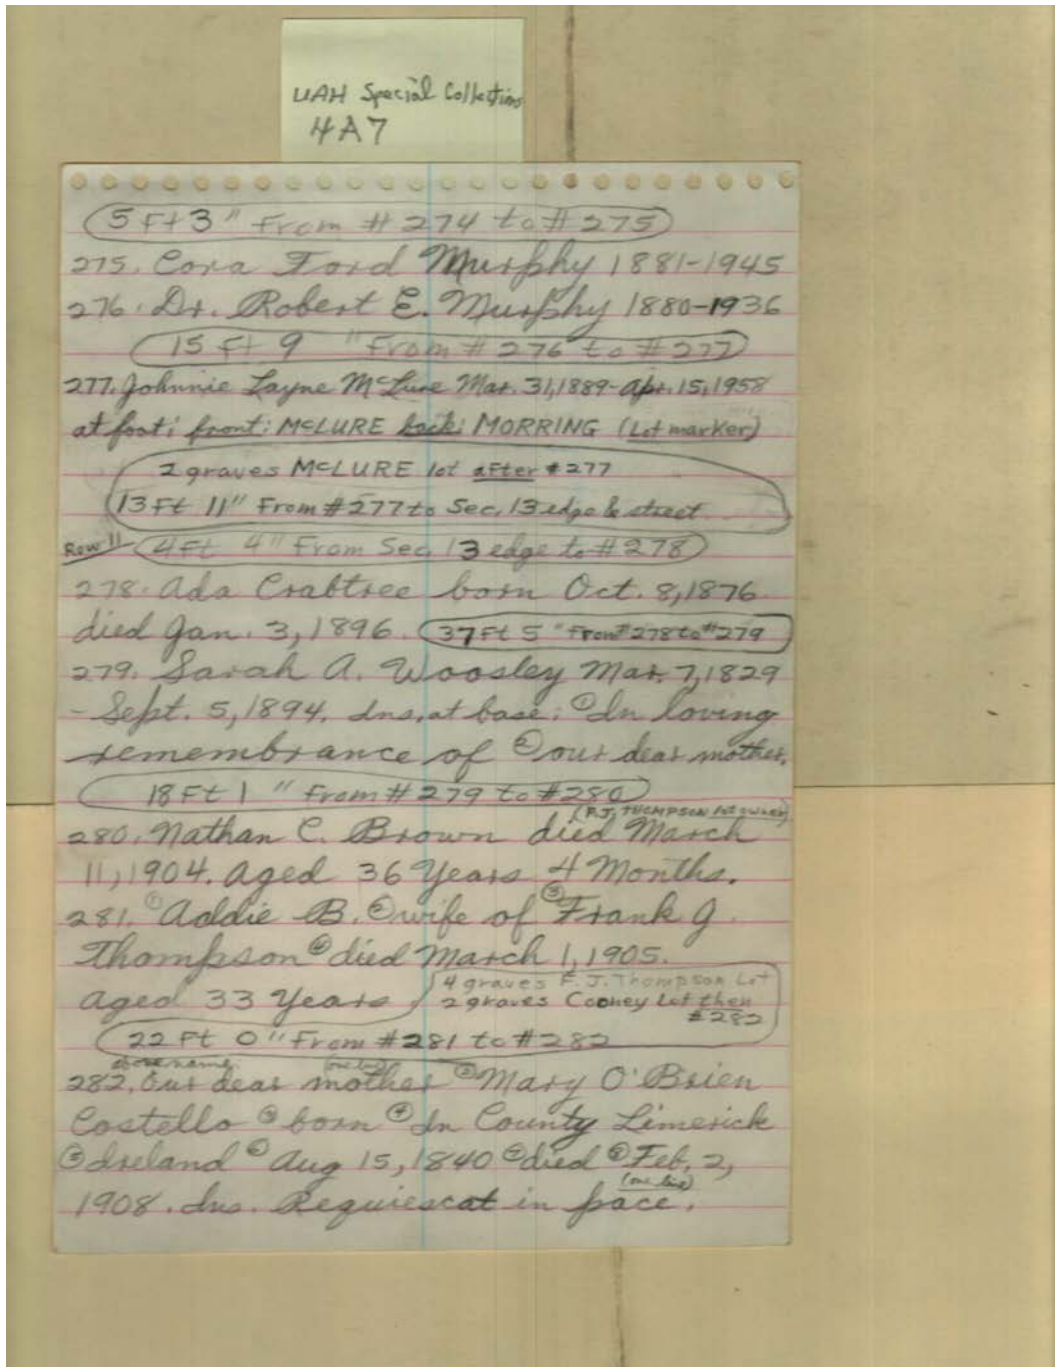 UAH Special Collections
4A7
5 Ft 3" From # 274 to # 275
275. Cora Ford Murphy 1881-1945
276. Dr. Robert E. Murphy 1880-1936
15 Ft 9 " From # 276 to # 277
277. Johnnie Layne McLure Mar. 31, 1889-Apr. 15, 1958
at foot: front: McLURE back: MORRING (Lot marker)
2 graves McLURE lot after # 277
13 Ft 11" From # 277 to Sec. 13 edge & street
Row 11 4 Ft 4" From Sec 13 edge to # 278
278. Ada Crabtree born Oct. 8, 1876
died Jan. 3, 1896. 37 Ft 5 " From # 278 to # 279
279. Sarah A. Woosley Mar. 7, 1829
- Sept. 5, 1894. Ins. at base: ① In loving
remembrance of ② our dear mother.
18 Ft 1 " From # 279 to # 280
(F.J. THOMPSON lot owner)
280. Nathan C. Brown died March
11, 1904. Aged 36 Years 4 Months.
281. ① Addie B. ② wife of ③ Frank J.
Thompson ④ died March 1, 1905.
Aged 33 Years
4 graves F. J. Thompson Lot
2 graves Cooney Lot then
# 282
22 Ft 0 " From # 281 to # 282
above name (one line)
282. Our dear mother ② Mary O'Brien
Costello ③ born ④ In County Limerick
⑤ Ireland ⑥ Aug 15, 1840 ⑦ died ⑧ Feb. 2,
(one line)
1908. Ins. Requiescat in pace.